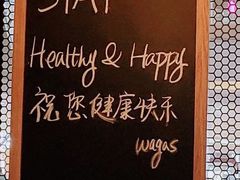 STAY
Healthy & Happy
祝您健康快乐
wagas